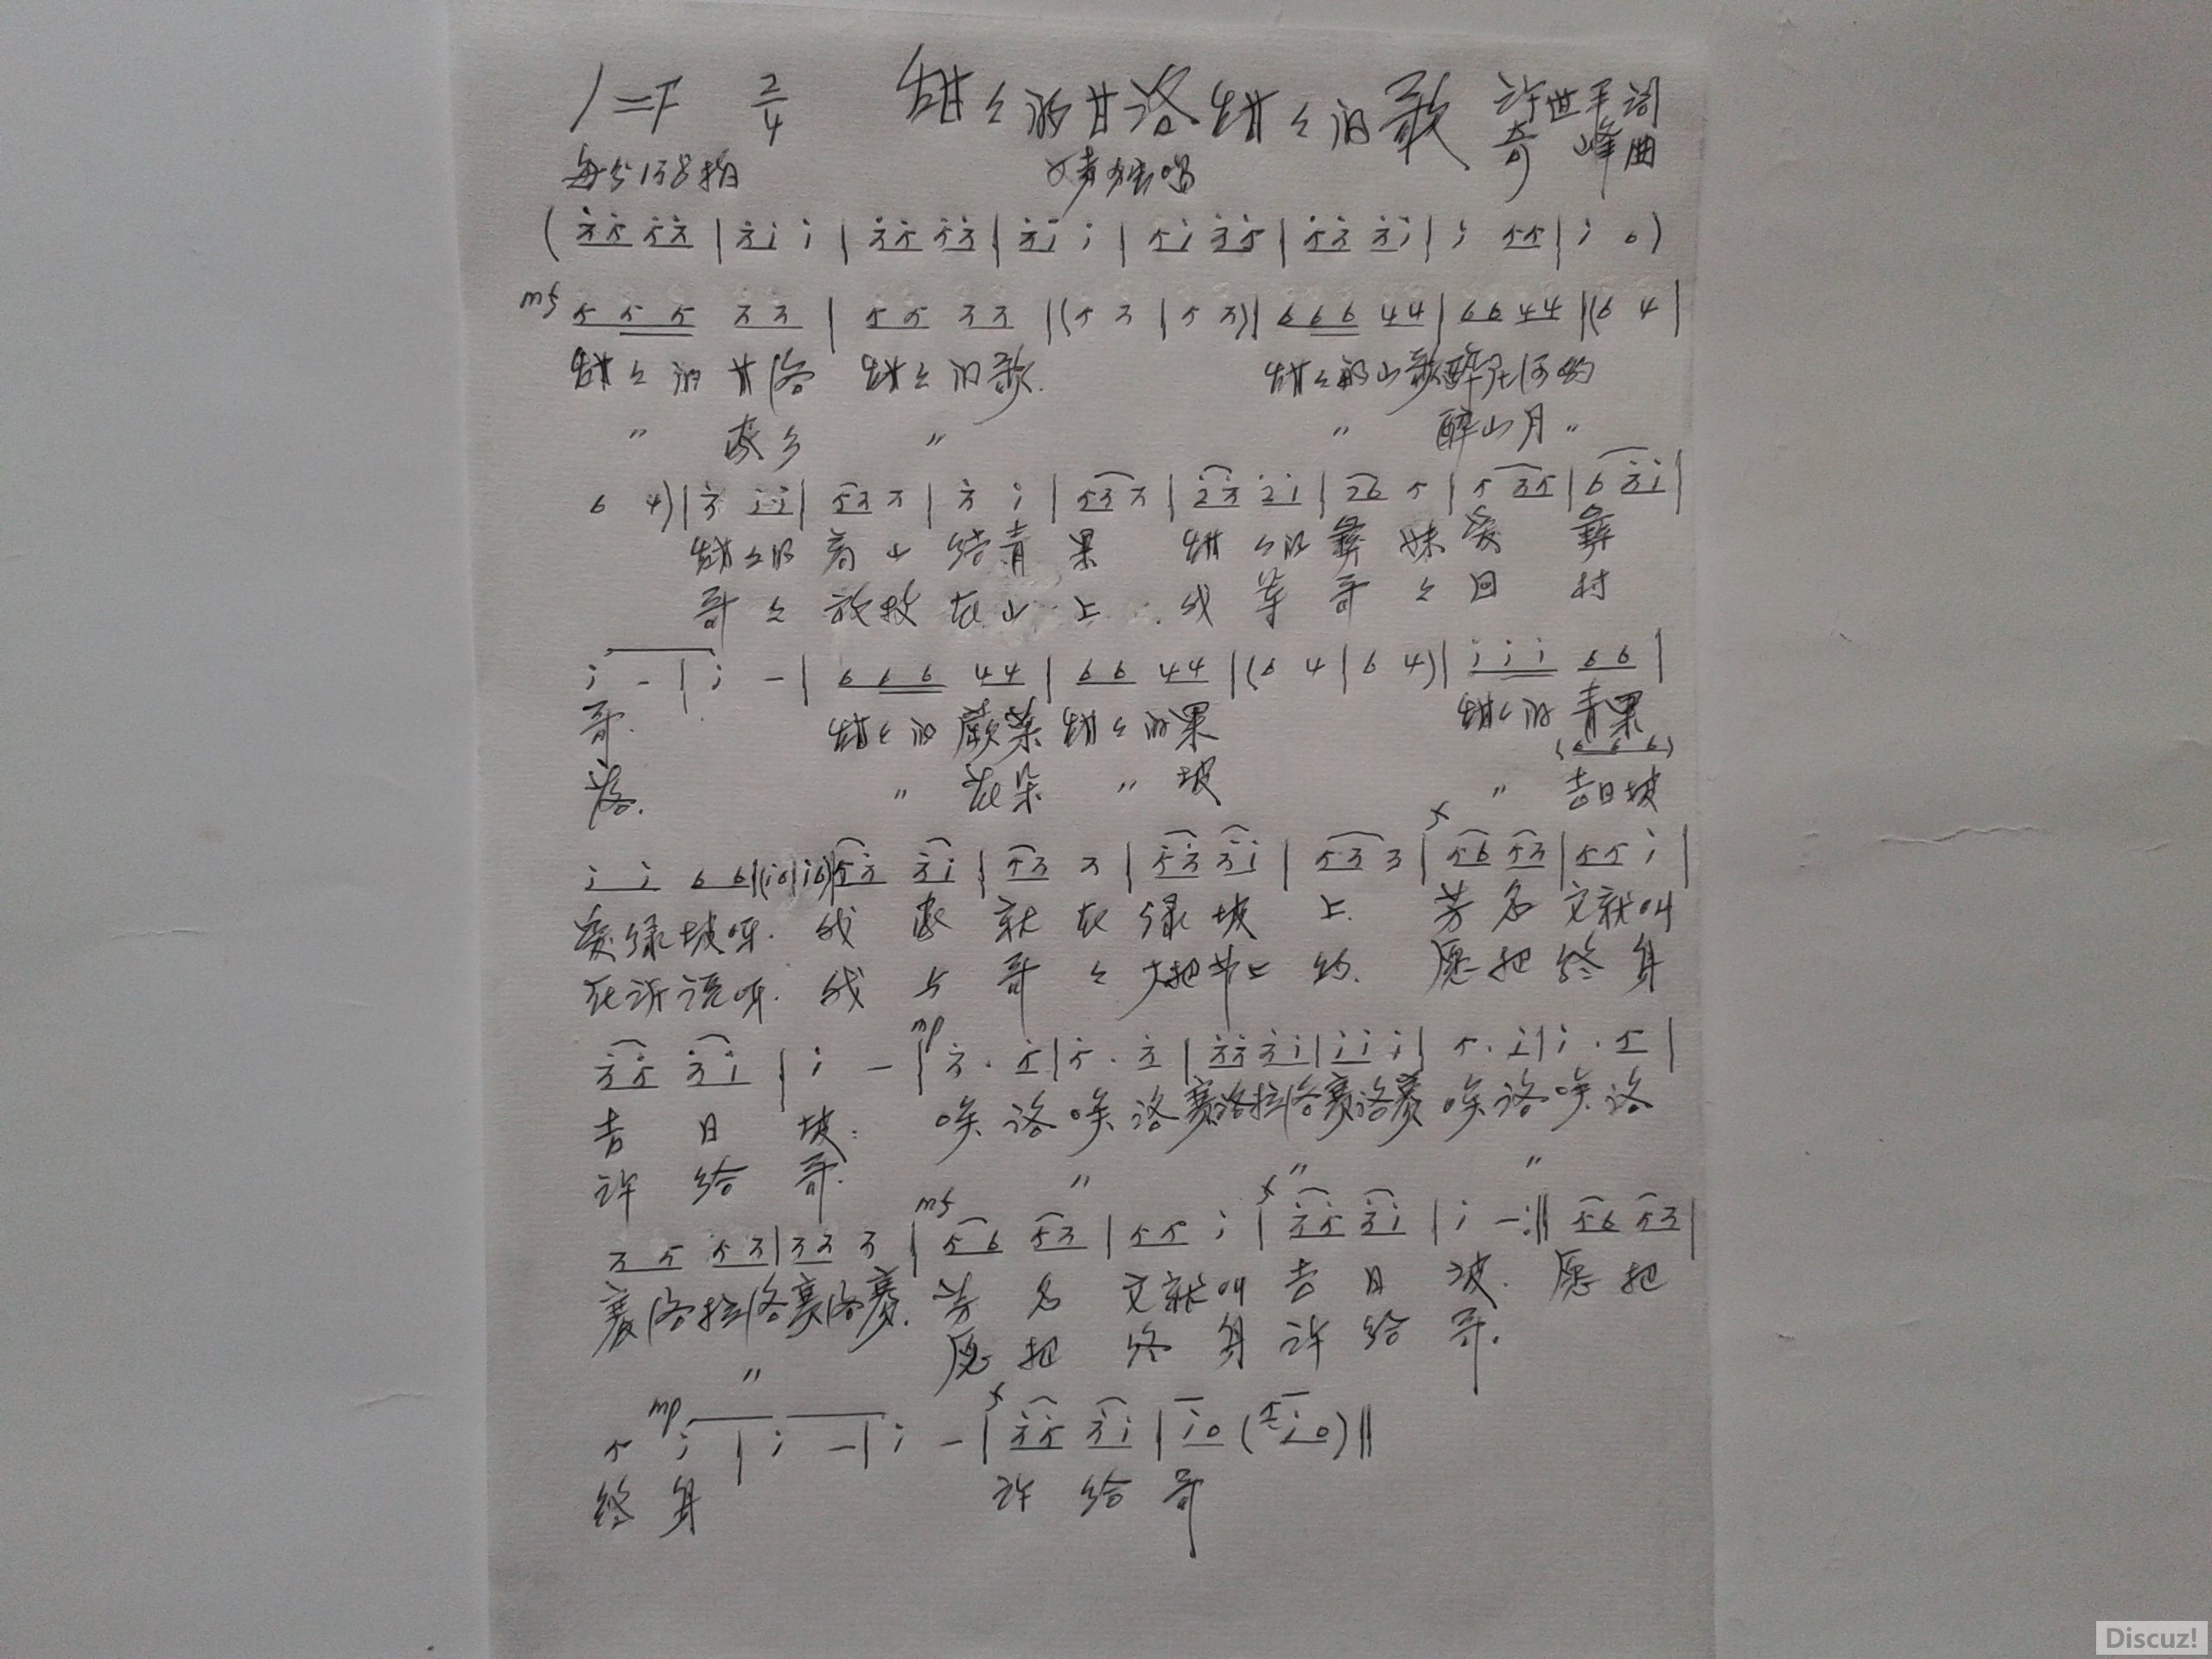 1=F 2/4 甜々的甘洛甜々的歌 许世平词
奇峰曲
每分138拍 女声独唱
(3̇5̇ 5̇3̇ | 3̇1̇ 1̇ | 3̇5̇ 5̇3̇ | 3̇1̇ 1̇ | 51̇ 3̇5̇ | 5̇3̇ 3̇1̇ | 1̇ 55 | 1̇ 0)
mf 5 5 5 3 3 | 5 5 3 3 | (5 3 | 5 3) | 6 6 6 4 4 | 6 6 4 4 | (6 4 |
甜々的甘洛 甜々的歌. 甜々的山歌醉
" 家乡 " " 醉山月 "
6 4) | 3̇ 1̇1̇ | 53 3 | 3̇ 1̇ | 53 3 | 2̇3̇ 2̇1̇ | 26 5 | 5 35 | 6 3̇1̇ |
甜々的高山结青果 甜々的彝妹爱彝
哥々放牧在山上. 我等哥々回村
1̇ - | 1̇ - | 6 6 6 4 4 | 6 6 4 4 | (6 4 | 6 4) | 1̇ 1̇ 1̇ 6 6 |
哥. 甜々的蕨菜甜々的果 甜々的青果
(6 6 6)
落. " 花朵 " 坡 " 吉日坡
1̇ 1̇ 6 6 | (1̇6 | 1̇6) | 53̇ 3̇1̇ | 53 3 | 5̇3̇ 3̇1̇ | 53 3 | f 56 53 | 55 1̇ |
爱绿坡呀. 我家就在绿坡上. 芳名文就叫
在诉说呀. 我与哥々火把节上约. 愿把终身
3̇5̇ 3̇1̇ | 1̇ - | mp 3̇ . 5̇ | 5̇ . 3̇ | 3̇3̇ 3̇1̇ | 1̇1̇ 1̇ | 5 . 1̇ | 1̇ . 5 |
吉日坡. 唉洛唉洛赛洛拉洛赛洛赛 唉洛唉洛
许给哥. " " "
3 5 5 3 | 3 3 3 | mf 56 53 | 55 1̇ | f 3̇5̇ 3̇1̇ | 1̇ - :|| 56 53 |
赛洛拉洛赛洛赛. 芳名文就叫吉日坡. 愿把
愿把终身许给哥.
"
5 mp 1̇ | 1̇ - | 1̇ - | f 3̇5̇ 3̇1̇ | 1̇0 (1̇0) ||
终身 许给哥
Discuz!